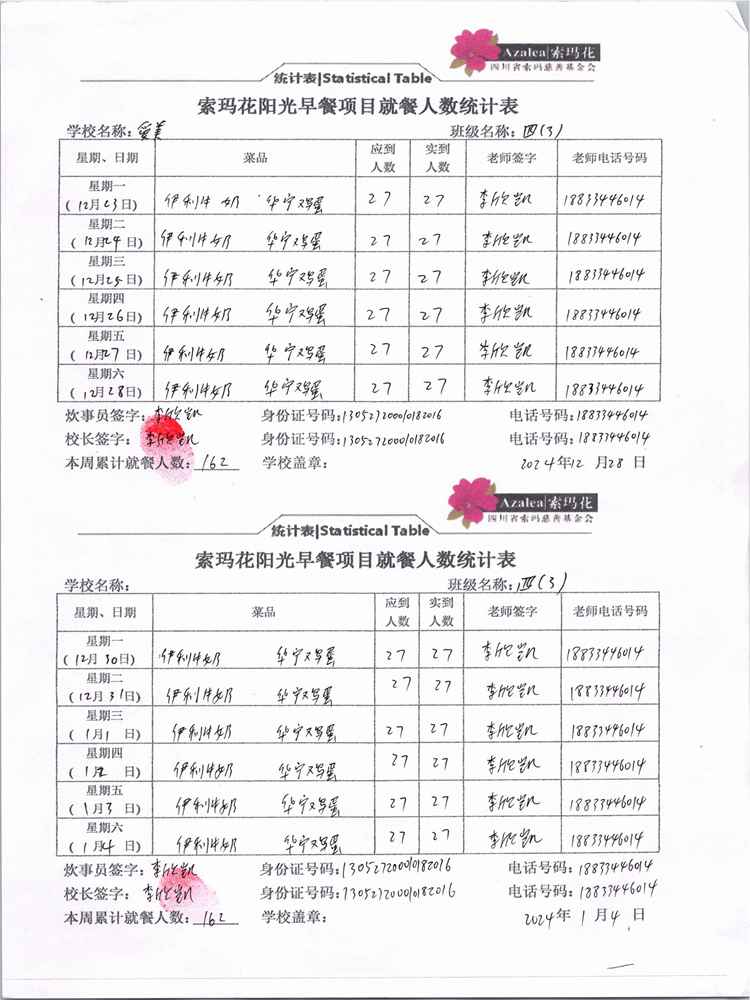 Azalea|索玛花
四川省索玛慈善基金会
统计表|Statistical Table
索玛花阳光早餐项目就餐人数统计表
学校名称：爱美 班级名称：四(3)
星期、日期 菜品 应到人数 实到人数 老师签字 老师电话号码
星期一 (12月23日) 伊利牛奶 华宁鸡蛋 27 27 李欣凯 18833446014
星期二 (12月24日) 伊利牛奶 华宁鸡蛋 27 27 李欣凯 18833446014
星期三 (12月25日) 伊利牛奶 华宁鸡蛋 27 27 李欣凯 18833446014
星期四 (12月26日) 伊利牛奶 华宁鸡蛋 27 27 李欣凯 18833446014
星期五 (12月27日) 伊利牛奶 华宁鸡蛋 27 27 李欣凯 18833446014
星期六 (12月28日) 伊利牛奶 华宁鸡蛋 27 27 李欣凯 18833446014
炊事员签字：李欣凯 身份证号码：130527200010182016 电话号码：18833446014
校长签字：李欣凯 身份证号码：130527200010182016 电话号码：18833446014
本周累计就餐人数：162 学校盖章： 2024年12月28日
Azalea|索玛花
四川省索玛慈善基金会
统计表|Statistical Table
索玛花阳光早餐项目就餐人数统计表
学校名称： 班级名称：四(3)
星期、日期 菜品 应到人数 实到人数 老师签字 老师电话号码
星期一 (12月30日) 伊利牛奶 华宁鸡蛋 27 27 李欣凯 18833446014
星期二 (12月31日) 伊利牛奶 华宁鸡蛋 27 27 李欣凯 18833446014
星期三 (1月1日) 伊利牛奶 华宁鸡蛋 27 27 李欣凯 18833446014
星期四 (1月2日) 伊利牛奶 华宁鸡蛋 27 27 李欣凯 18833446014
星期五 (1月3日) 伊利牛奶 华宁鸡蛋 27 27 李欣凯 18833446014
星期六 (1月4日) 伊利牛奶 华宁鸡蛋 27 27 李欣凯 18833446014
炊事员签字：李欣凯 身份证号码：130527200010182016 电话号码：18833446014
校长签字：李欣凯 身份证号码：130527200010182016 电话号码：18833446014
本周累计就餐人数：162 学校盖章： 2024年1月4日